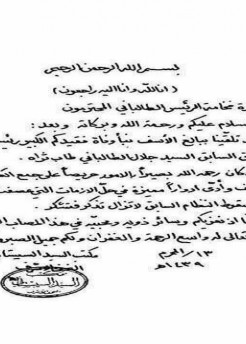 بسم الله الرحمن الرحيم
(انا لله وانا اليه راجعون)
ة فخامة الرئيس الطالباني المحترمون
سلام عليكم ورحمة الله وبركاته وبعد:
تلقينا ببالغ الأسف نبأ وفاة فقيدكم الكبير رئيس
السابق السيد جلال الطالباني طاب ثراه
كان رحمه الله بصيراً بالأمور حريصاً على جمع
وأدى أدواراً مميزة في حل الأزمات التي
سقوط النظام السابق لا تزال
نعزيكم وسائر ذويه ومحبيه في هذا المصاب
له واسع الرحمة والغفران ولكم جميل الصبر
١٣ / المحرم
١٤٣٩ هـ
مكتب السيد السيستاني
النجف الأشرف